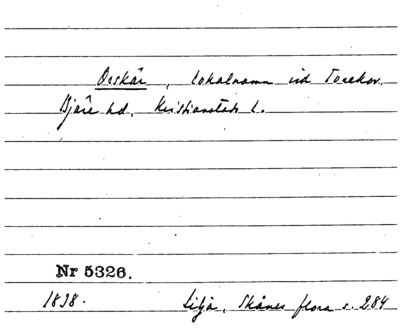 Orskär, lokalnamn vid Torekov.
Bjäre hd. Kristianstads l.
Nr 5326.
1838. Lilja, Skånes flora s. 284